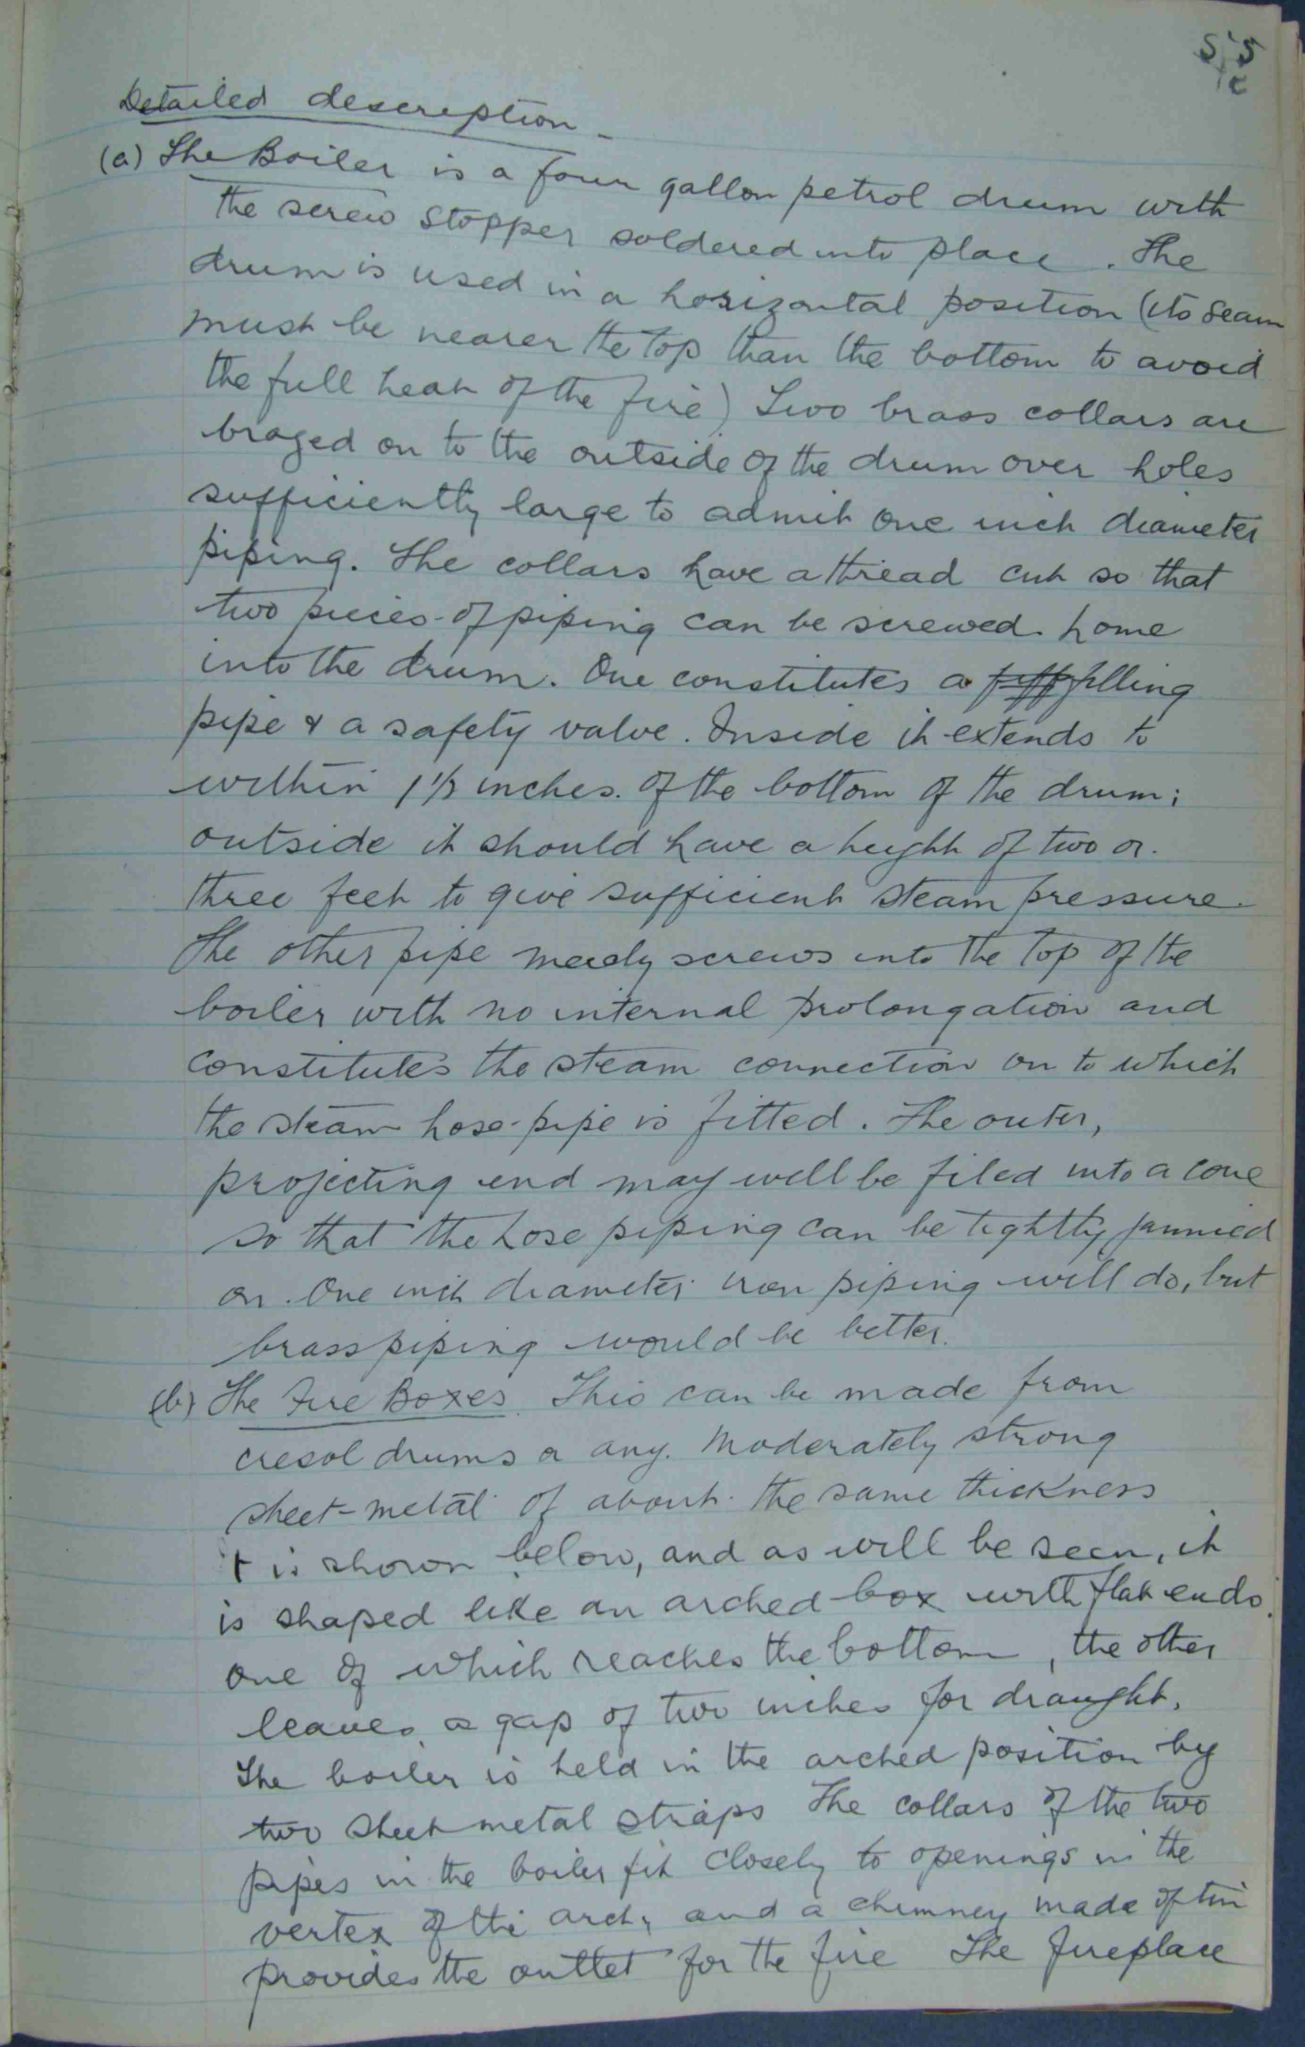 5'5
Detailed description -
(a) The Boiler is a four gallon petrol drum with
the screw stopper soldered into place. The
drum is used in a horizontal position (its seam
must be nearer the top than the bottom to avoid
the full heat of the fire) Two brass collars are
brazed on to the outside of the drum over holes
sufficiently large to admit one inch diameter
piping. The collars have a thread cut so that
two pieces of piping can be screwed home
into the drum. One constitutes a filling
pipe & a safety valve. Inside it extends to
within 1 1/2 inches of the bottom of the drum;
outside it should have a height of two or
three feet to give sufficient steam pressure.
The other pipe merely screws into the top of the
boiler with no internal prolongation and
constitutes the steam connection on to which
the steam hose-pipe is fitted. The outer,
projecting end may well be filed into a cone
so that the hose piping can be tightly jammed
on. One inch diameter iron piping will do, but
brass piping would be better.
(b) The Fire Boxes. This can be made from
cresol drums or any moderately strong
sheet-metal of about the same thickness
it is shown below, and as will be seen, it
is shaped like an arched box with flat ends.
one of which reaches the bottom, the other
leaves a gap of two inches for draught.
The boiler is held in the arched position by
two sheet metal straps The collars of the two
pipes in the boiler fit closely to openings in the
vertex of the arch, and a chimney made of tin
provides the outlet for the fire The fireplace